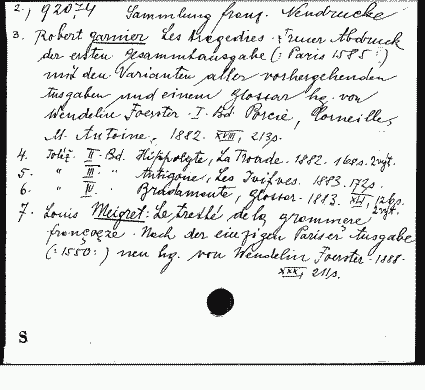 2., 92074 Sammlung franz. Neudrucke
3. Robert garnier Les tragedies. treuer Abdruck
der ersten Gesammtausgabe (: Paris 1585 :)
mit den Varianten aller vorhergehenden
Ausgaben und einem Glossar hg. von
Wendelin Foerster. I. Bd. Porcie, Corneille,
M. Antoine, 1882. XVIII, 213s.
4. II. Bd. Hippolyte, La Troade. 1882. 168s.
5. " III. " Antigone, Les Iuifves. 1883. 172s.
6. " IV. Bradamante, Glossar. 1883.
7. Louis Meigret: Le tretté de la grammere
françoeze. Nach der einzigen Pariser Ausgabe
(: 1550 :) neu hg. von Wendelin Foerster. 1888.
XXX, 211s.
S